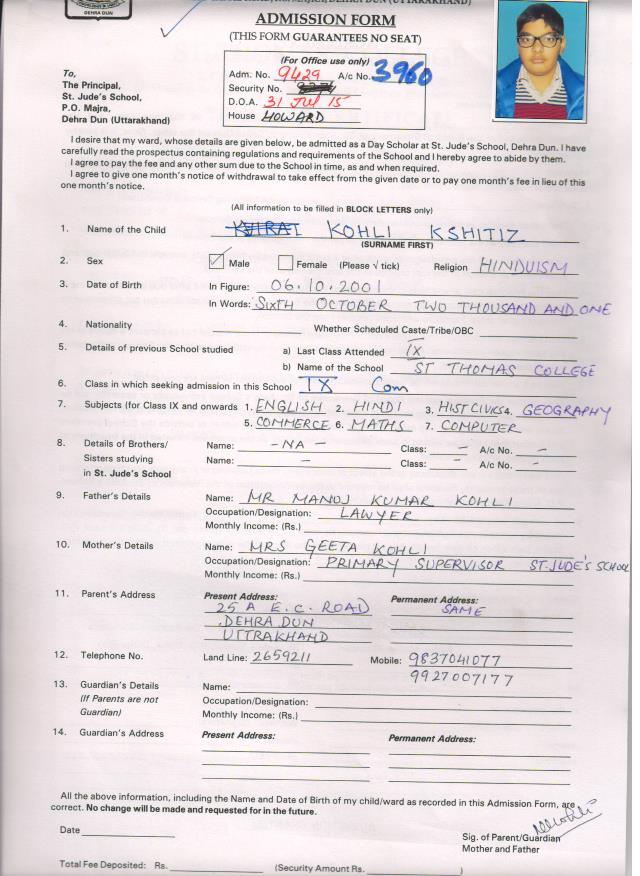 DEHRA DUN
ADMISSION FORM
(THIS FORM GUARANTEES NO SEAT)
To,
The Principal,
St. Jude's School,
P.O. Majra,
Dehra Dun (Uttarakhand)
(For Office use only)
Adm. No. 9429 A/c No. 3960
Security No.
D.O.A. 31 Jul 15
House HOWARD
I desire that my ward, whose details are given below, be admitted as a Day Scholar at St. Jude's School, Dehra Dun. I have
carefully read the prospectus containing regulations and requirements of the School and I hereby agree to abide by them.
I agree to pay the fee and any other sum due to the School in time, as and when required.
I agree to give one month's notice of withdrawal to take effect from the given date or to pay one month's fee in lieu of this
one month's notice.
(All information to be filled in BLOCK LETTERS only)
1. Name of the Child KOHLI KSHITIZ
(SURNAME FIRST)
2. Sex Male Female (Please √ tick) Religion HINDUISM
3. Date of Birth In Figure: 06.10.2001
In Words: SIXTH OCTOBER TWO THOUSAND AND ONE
4. Nationality Whether Scheduled Caste/Tribe/OBC
5. Details of previous School studied a) Last Class Attended IX
b) Name of the School ST THOMAS COLLEGE
6. Class in which seeking admission in this School IX Com
7. Subjects (for Class IX and onwards 1. ENGLISH 2. HINDI 3. HIST CIVICS 4. GEOGRAPHY
5. COMMERCE 6. MATHS 7. COMPUTER
8. Details of Brothers/ Name: - NA - Class: - A/c No. -
Sisters studying Name: - Class: - A/c No. -
in St. Jude's School
9. Father's Details Name: MR MANOJ KUMAR KOHLI
Occupation/Designation: LAWYER
Monthly Income: (Rs.)
10. Mother's Details Name: MRS GEETA KOHLI
Occupation/Designation: PRIMARY SUPERVISOR ST.JUDE'S SCHOOL
Monthly Income: (Rs.)
11. Parent's Address Present Address: Permanent Address:
25 A E.C. ROAD SAME
DEHRA DUN
UTTRAKHAND
12. Telephone No. Land Line: 2659211 Mobile: 9837041077
9927007177
13. Guardian's Details Name:
(If Parents are not Occupation/Designation:
Guardian) Monthly Income: (Rs.)
14. Guardian's Address Present Address: Permanent Address:
All the above information, including the Name and Date of Birth of my child/ward as recorded in this Admission Form, are
correct. No change will be made and requested for in the future.
Date
Sig. of Parent/Guardian
Mother and Father
Total Fee Deposited: Rs. (Security Amount Rs. )